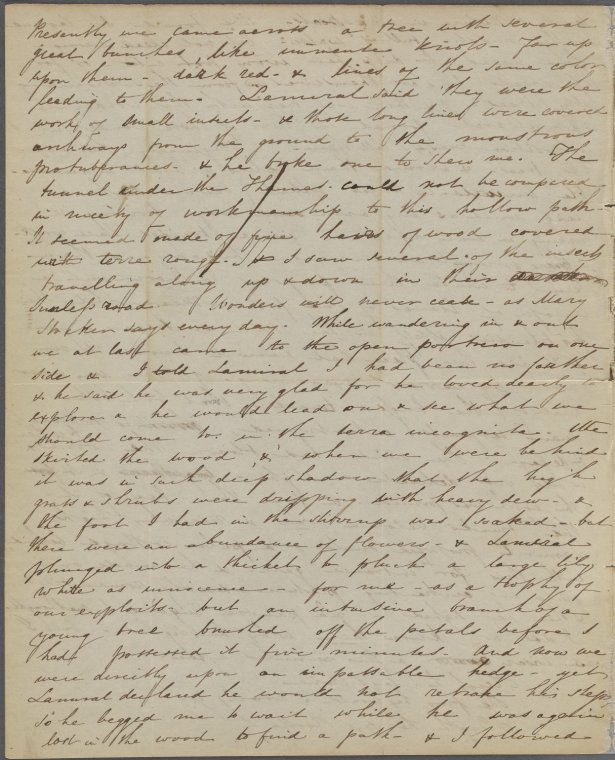 Presently we came across a tree with several
great bunches, like immense knobs - far up
upon them - dark red - & lines of the same color
leading to them. Lamiral said they were the
work of small insects - & those long lines were covered
archways from the ground to the monstrous
protuberances - & he broke one to shew me. The
tunnel under the Thames could not be compared
in nicety of workmanship to this hollow path -
It seemed made of fine hairs of wood covered
with terre rouge - & I saw several of the insects
travelling along up & down in their
sunless road Wonders will never cease - as Mary
says every day. While wandering in & out
we at last came to the open on one
side & I told Lamiral I had been no farther
& he said he was very glad for he loved dearly
explore & he would lead on & see what we
should come to in the terra incognita. We
skirted the wood, & when we were behind
it was in such deep shadow that the high
grass & shrubs were dripping with heavy dew - &
the foot I had in the stirrup was soaked - but
there were an abundance of flowers - & Lamiral
plunged into a thicket to pluck a large lily -
white as innocence - for me - as a trophy of
our exploits - but an intrusive branch of a
young tree brushed off the petals before I
had possessed it five minutes. And now we
were directly upon an impassable hedge - yet
Lamiral declared he would not retrace his steps
so he begged me to wait while he was again
lost in the wood to find a path - & I followed